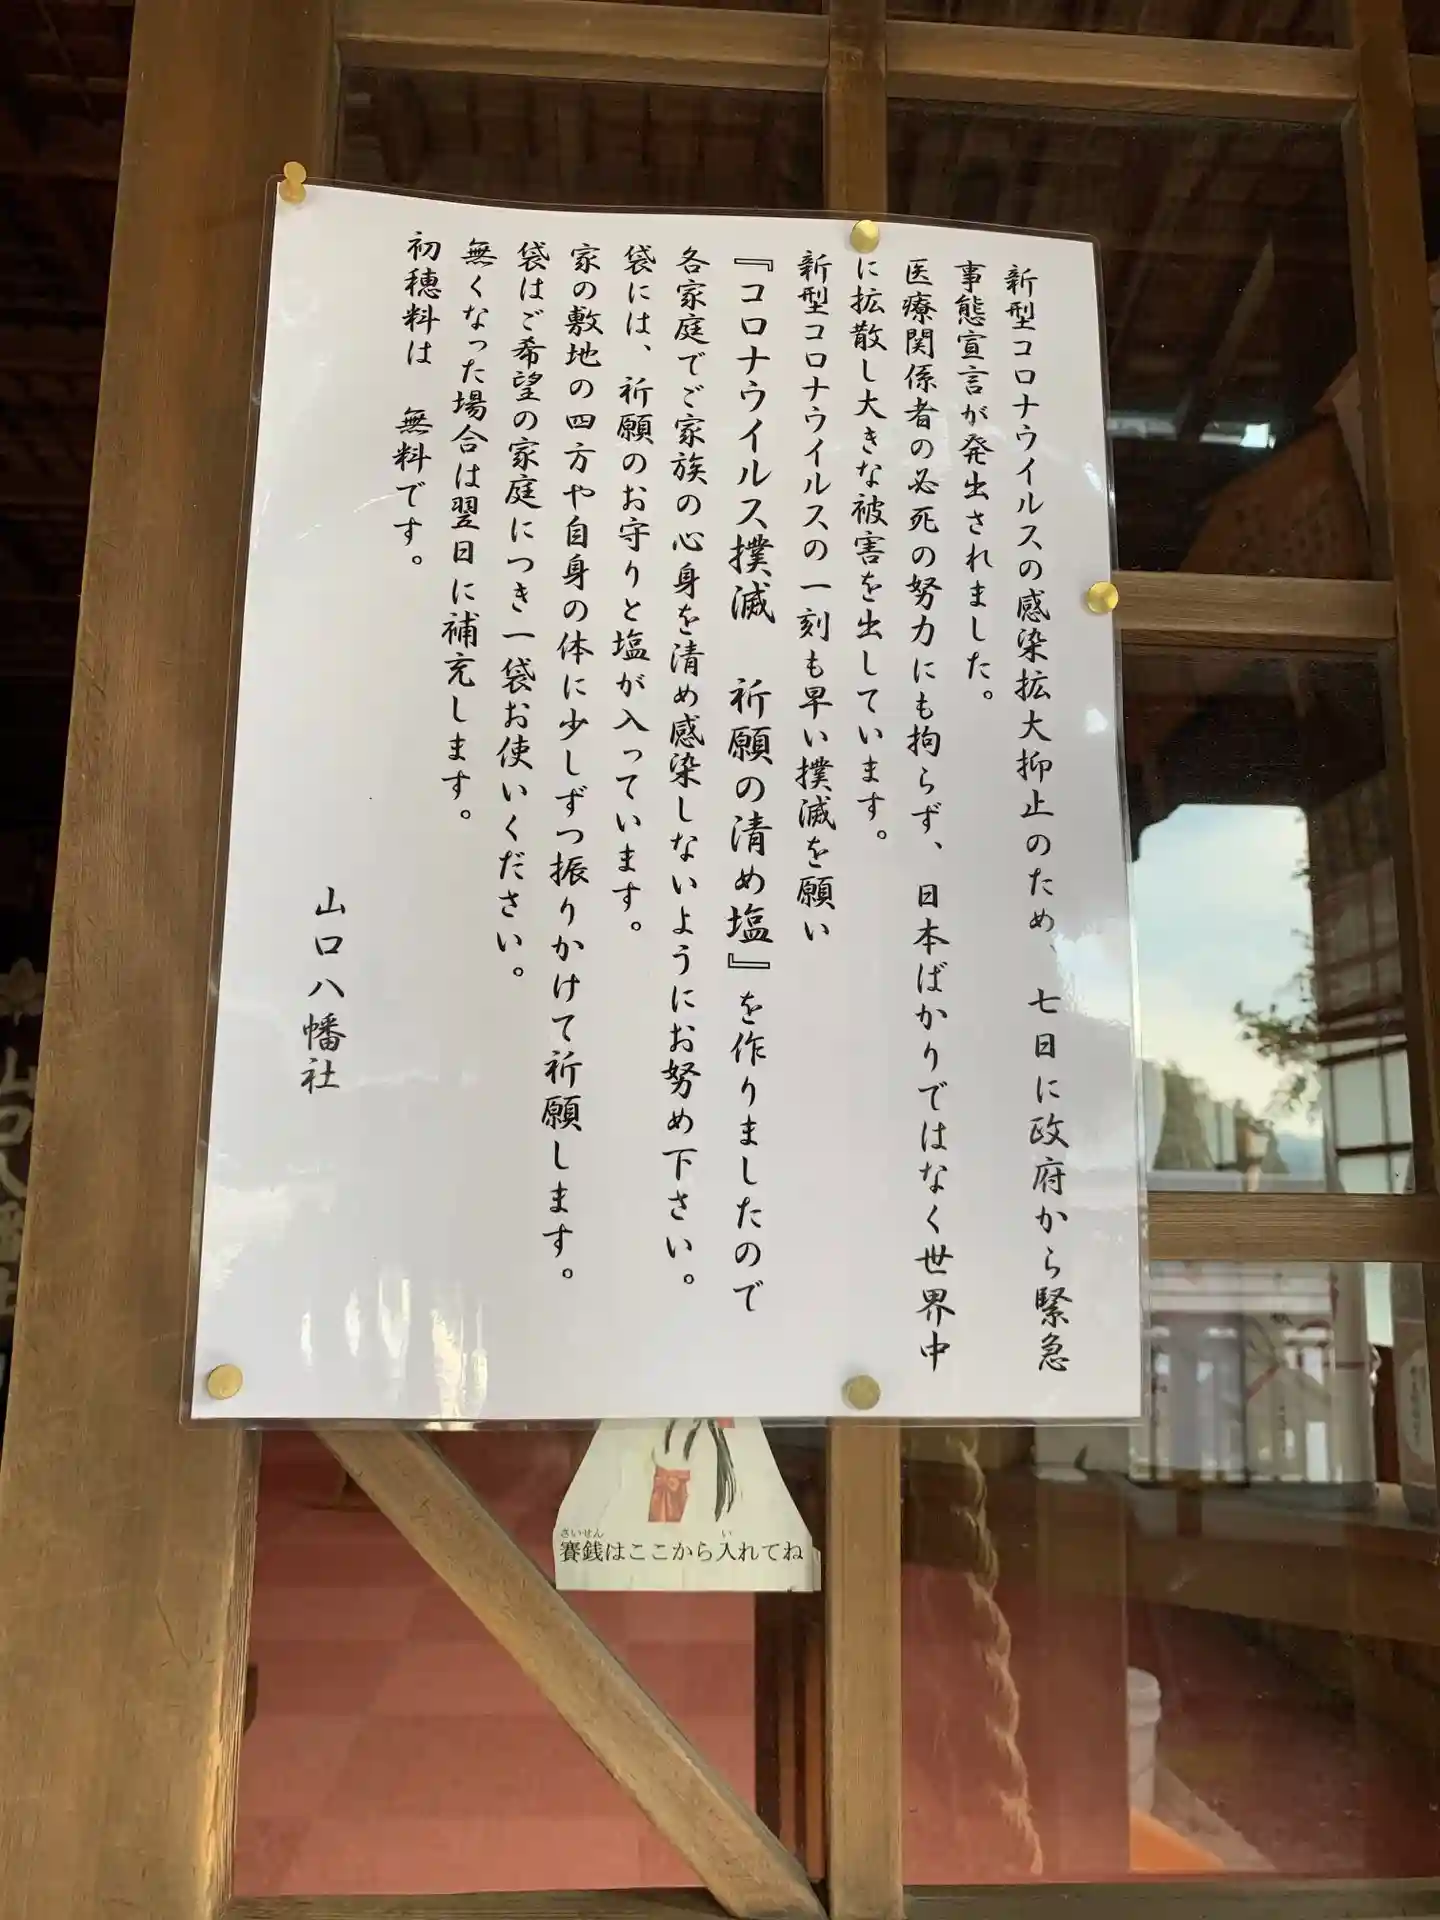 新型コロナウイルスの感染拡大抑止のため、七日に政府から緊急
事態宣言が発出されました。
医療関係者の必死の努力にも拘らず、日本ばかりではなく世界中
に拡散し大きな被害を出しています。
新型コロナウイルスの一刻も早い撲滅を願い
『コロナウイルス撲滅 祈願の清め塩』を作りましたので
各家庭でご家族の心身を清め感染しないようにお努め下さい。
袋には、祈願のお守りと塩が入っています。
家の敷地の四方や自身の体に少しずつ振りかけて祈願します。
袋はご希望の家庭につき一袋お使いください。
無くなった場合は翌日に補充します。
初穂料は 無料です。
山口八幡社
賽銭はここから入れてね